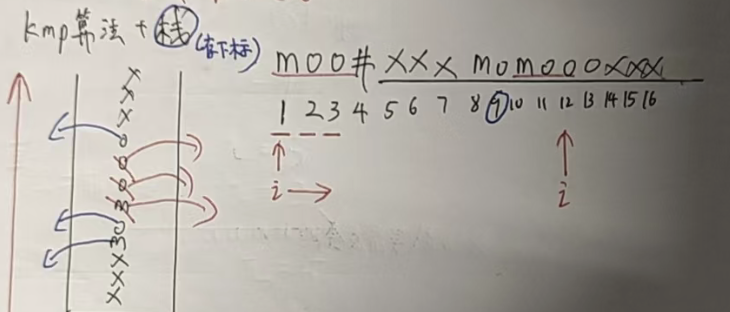 kmp算法 + 栈 (存下标)
moo# xxx momoooxxx
1 2 3 4 5 6 7 8 9 10 11 12 13 14 15 16
i i
x
x
x
o
o
o
m
o
m
x
x
x